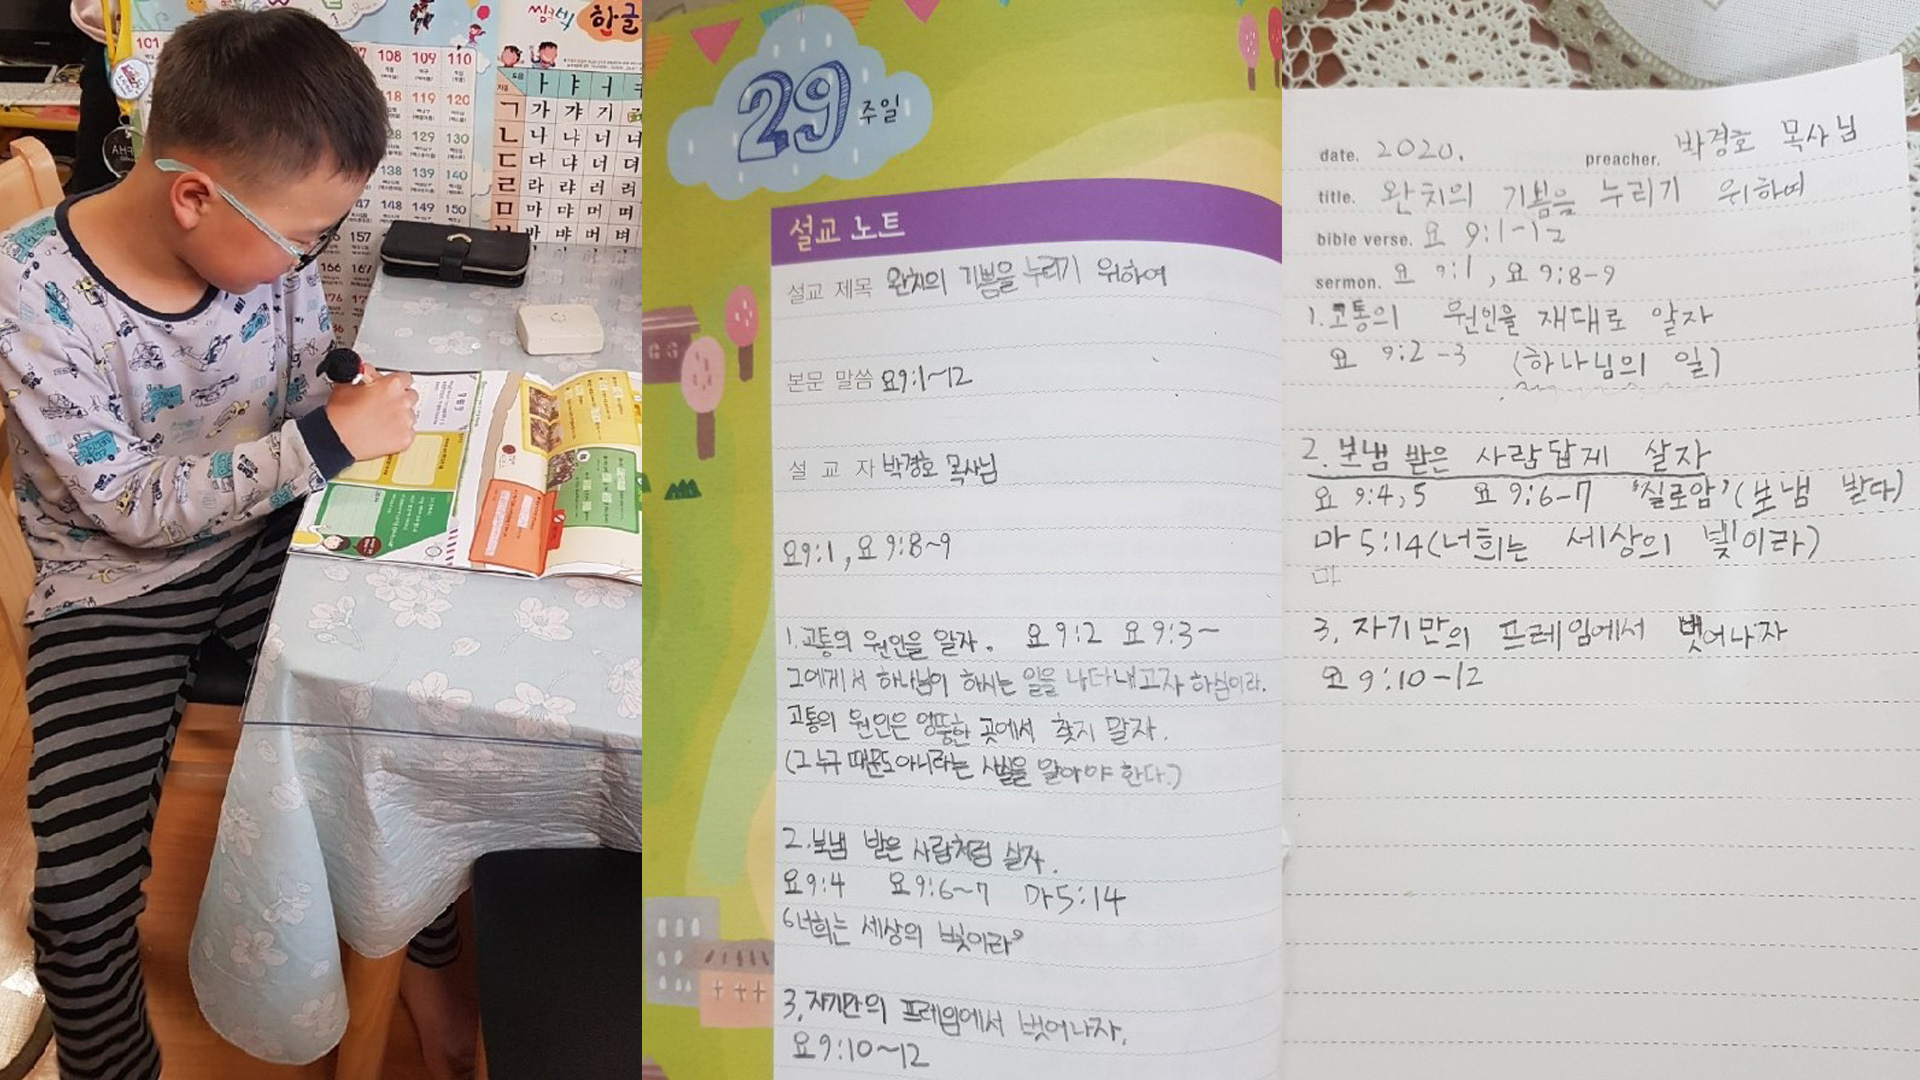 씽크빅 한글
101
108 109 110
118 119 120
128 129 130
138 139 140
147 148 149 150
157
166 167
176
모음
자음
ㅏ ㅑ ㅓ ㅕ
ㄱ 가 갸 거
ㄴ 나 냐 너 녀
ㄷ 다 댜 더 뎌
ㄹ 라 랴 러 려
ㅁ 마 먀 머 며
ㅂ 바 뱌 버 벼
29 주일
설교 노트
설교 제목 완치의 기쁨을 누리기 위하여
본문 말씀 요9:1~12
설 교 자 박경호 목사님
요9:1, 요9:8~9
1.고통의 원인을 알자. 요9:2 요9:3~
그에게서 하나님이 하시는 일을 나타내고자 하심이라.
고통의 원인은 엉뚱한 곳에서 찾지 말자.
(그 누구 때문도아니라는 사실을 알아야 한다.)
2.보냄 받은 사람처럼 살자.
요9:4 요9:6~7 마5:14
'너희는 세상의 빛이라'
3.자기만의 프레임에서 벗어나자.
요9:10~12
date. 2020. preacher. 박경호 목사님
title. 완치의 기쁨을 누리기 위하여
bible verse. 요 9:1-12
sermon. 요 9:1, 요 9:8-9
1.고통의 원인을 재대로 알자
요 9:2-3 (하나님의 일)
2. 보냄 받은 사람답게 살자
요 9:4,5 요 9:6-7 '실로암'(보냄 받다)
마 5:14(너희는 세상의 빛이라)
마
3. 자기만의 프레임에서 벗어나자
요 9:10-12